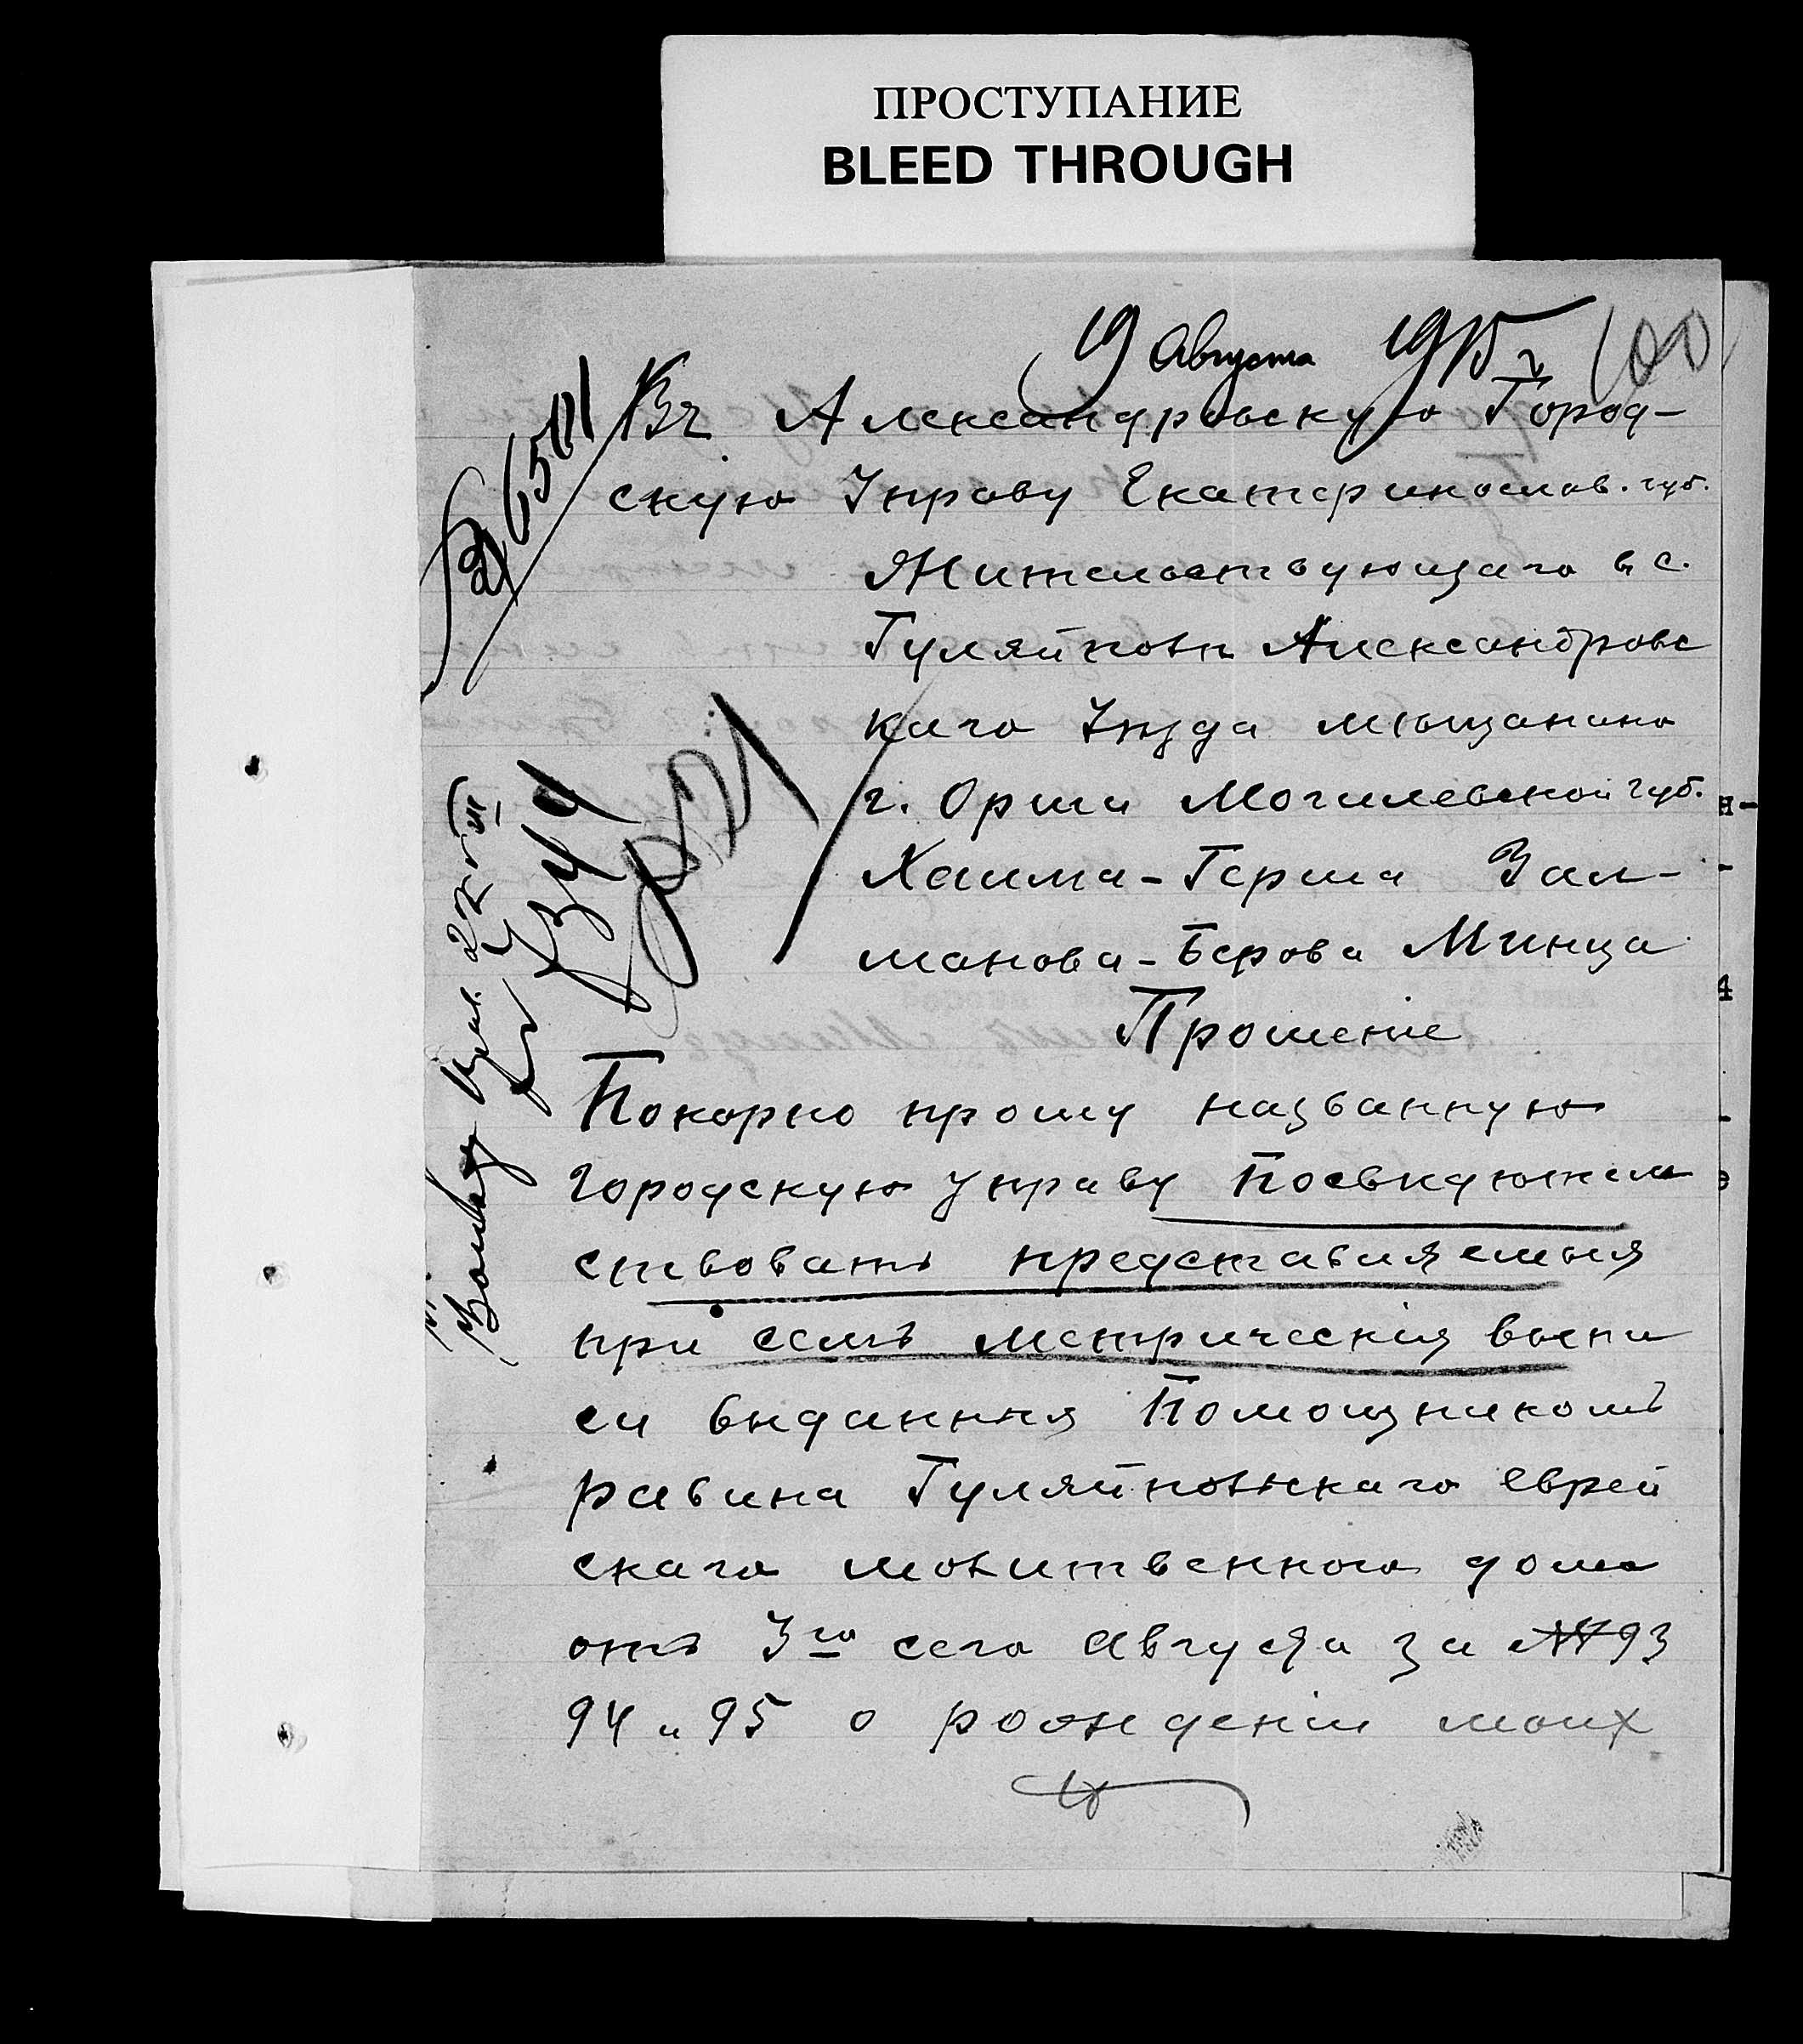 ПРОСТУПАНИЕ
BLEED THROUGH
19 Августа 1915 г.
100
Въ Александровскую Город-
скую Управу Екатеринослав. губ.
Жительствующаго в с.
Гуляйполѣ Александровс
каго Уѣзда мѣщанина
г. Орши Могилевской губ.
Хаима-Герша Зал-
манова-Берова Минца
Прошение
Покорно прошу названную
городскую управу посвидютель
ствовать представляемыя
при семъ метрическия выпи
си выданныя Помощникомъ
равина Гуляйпольскаго еврей
скаго молитвенного дома
отъ 3го сего Августа за №№ 93
94 и 95 о рождении моих
6501
5344